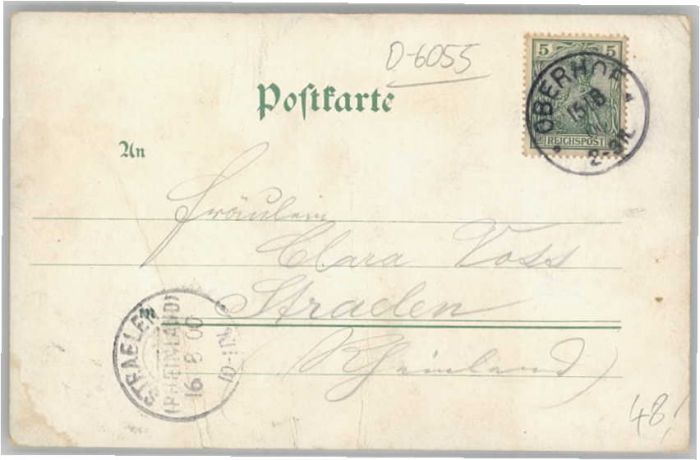 D-6055
5 5
REICHSPOST
OBERHOF
15/8
2-3N.
Postkarte
An
Fräulein
Clara Voss
in Straelen
(Rheinland)
STRAELEN
(RHEINLAND)
16 8 00
48,